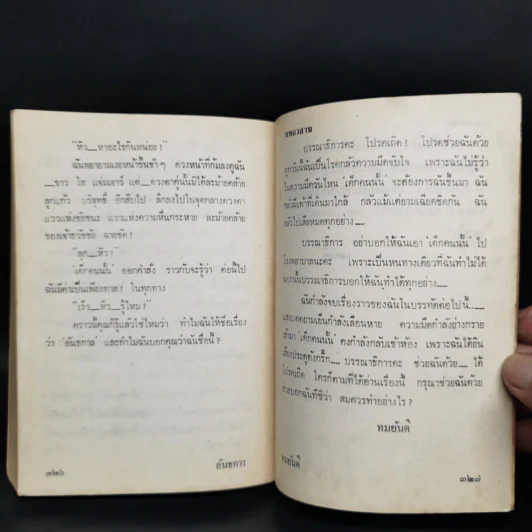 "หิว.....หาอะไรกินหน่อย !
ฉันพยายามเงยหน้าขึ้นช้า ๆ ดวงหน้าที่ก้มลงดูฉัน
.....ขาว ใส แจ่มเยาว์ แต่.....ดวงตาคู่นั้นมิได้ละม้ายคล้าย
ลูกแก้ว บริสุทธิ์ อีกสืบไป ลึกลงไปในจุดกลางดวงตา
แววแห่งชัยชนะ แววแห่งความหื่นกระหาย ละม้ายคล้าย
ของเจ้าชวัชชัย ฉายชัด !
"ลุก.....หิว !"
เด็กคนนั้น ออกคำสั่ง ราวกับจะรู้ว่า ต่อนี้ไป
ฉันมีค่าเป็นเพียงทาส ! ในทุกทาง
"เร็ว.....หิว.....รู้ไหม ?"
คราวนี้คุณก็รู้แล้วใช่ไหมว่า ทำไมฉันให้ชื่อเรื่อง
ว่า 'อันธกาล' และทำไมฉันบอกคุณว่าฉันชื่อนี้ ?
๓๒๖
บรรณาธิการคะ โปรดเถิด ! โปรดช่วยฉันด้วย
ทุกวันนี้ฉันเป็นโรคกลัวความมืดจับใจ เพราะฉันไม่รู้ว่า
ในความมืดวันไหน เด็กคนนั้น จะต้องการฉันขึ้นมา ฉัน
กลัวแม้แต่ยามเฉียดชิดกัน ฉัน
กลัวไปเสียหมดทุกอย่าง.....
บรรณาธิการ อย่าบอกให้ฉันเอา เด็กคนนั้น ไป
โรงพยาบาลนะคะ เพราะเป็นหนทางเดียวที่ฉันทำไม่ได้
นอกนั้นบรรณาธิการบอกให้ฉันทำได้ทุกอย่าง.....
ฉันกำลังจบเรื่องราวของฉันในบรรทัดต่อไปนี้.....
แสงแดดยามเย็นกำลังเลือนหาย ความมืดกำลังย่างกราย
เข้ามา เด็กคนนั้น คงกำลังกลับเข้าห้อง เพราะฉันได้ยิน
เสียงประตูดังกริ๊ก..... บรรณาธิการคะ ช่วยฉันด้วย..... ได้
โปรดเถิด ใครก็ตามที่ได้อ่านเรื่องนี้ กรุณาช่วยฉันด้วย
ช่วยบอกฉันทีซิว่า สมควรทำอย่างไร ?
ทมยันตี
ทมยันตี
๓๒๗